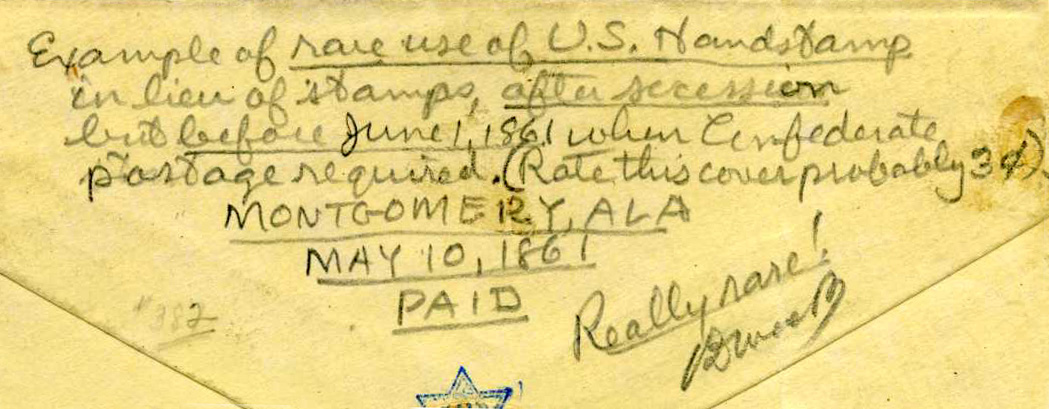 Example of rare use of U.S. Handstamp
in lieu of stamps, after secession
but before June 1, 1861 when Confederate
postage required. (Rate this cover probably 3¢).
MONTGOMERY, ALA
MAY 10, 1861
PAID
Really rare!
#382